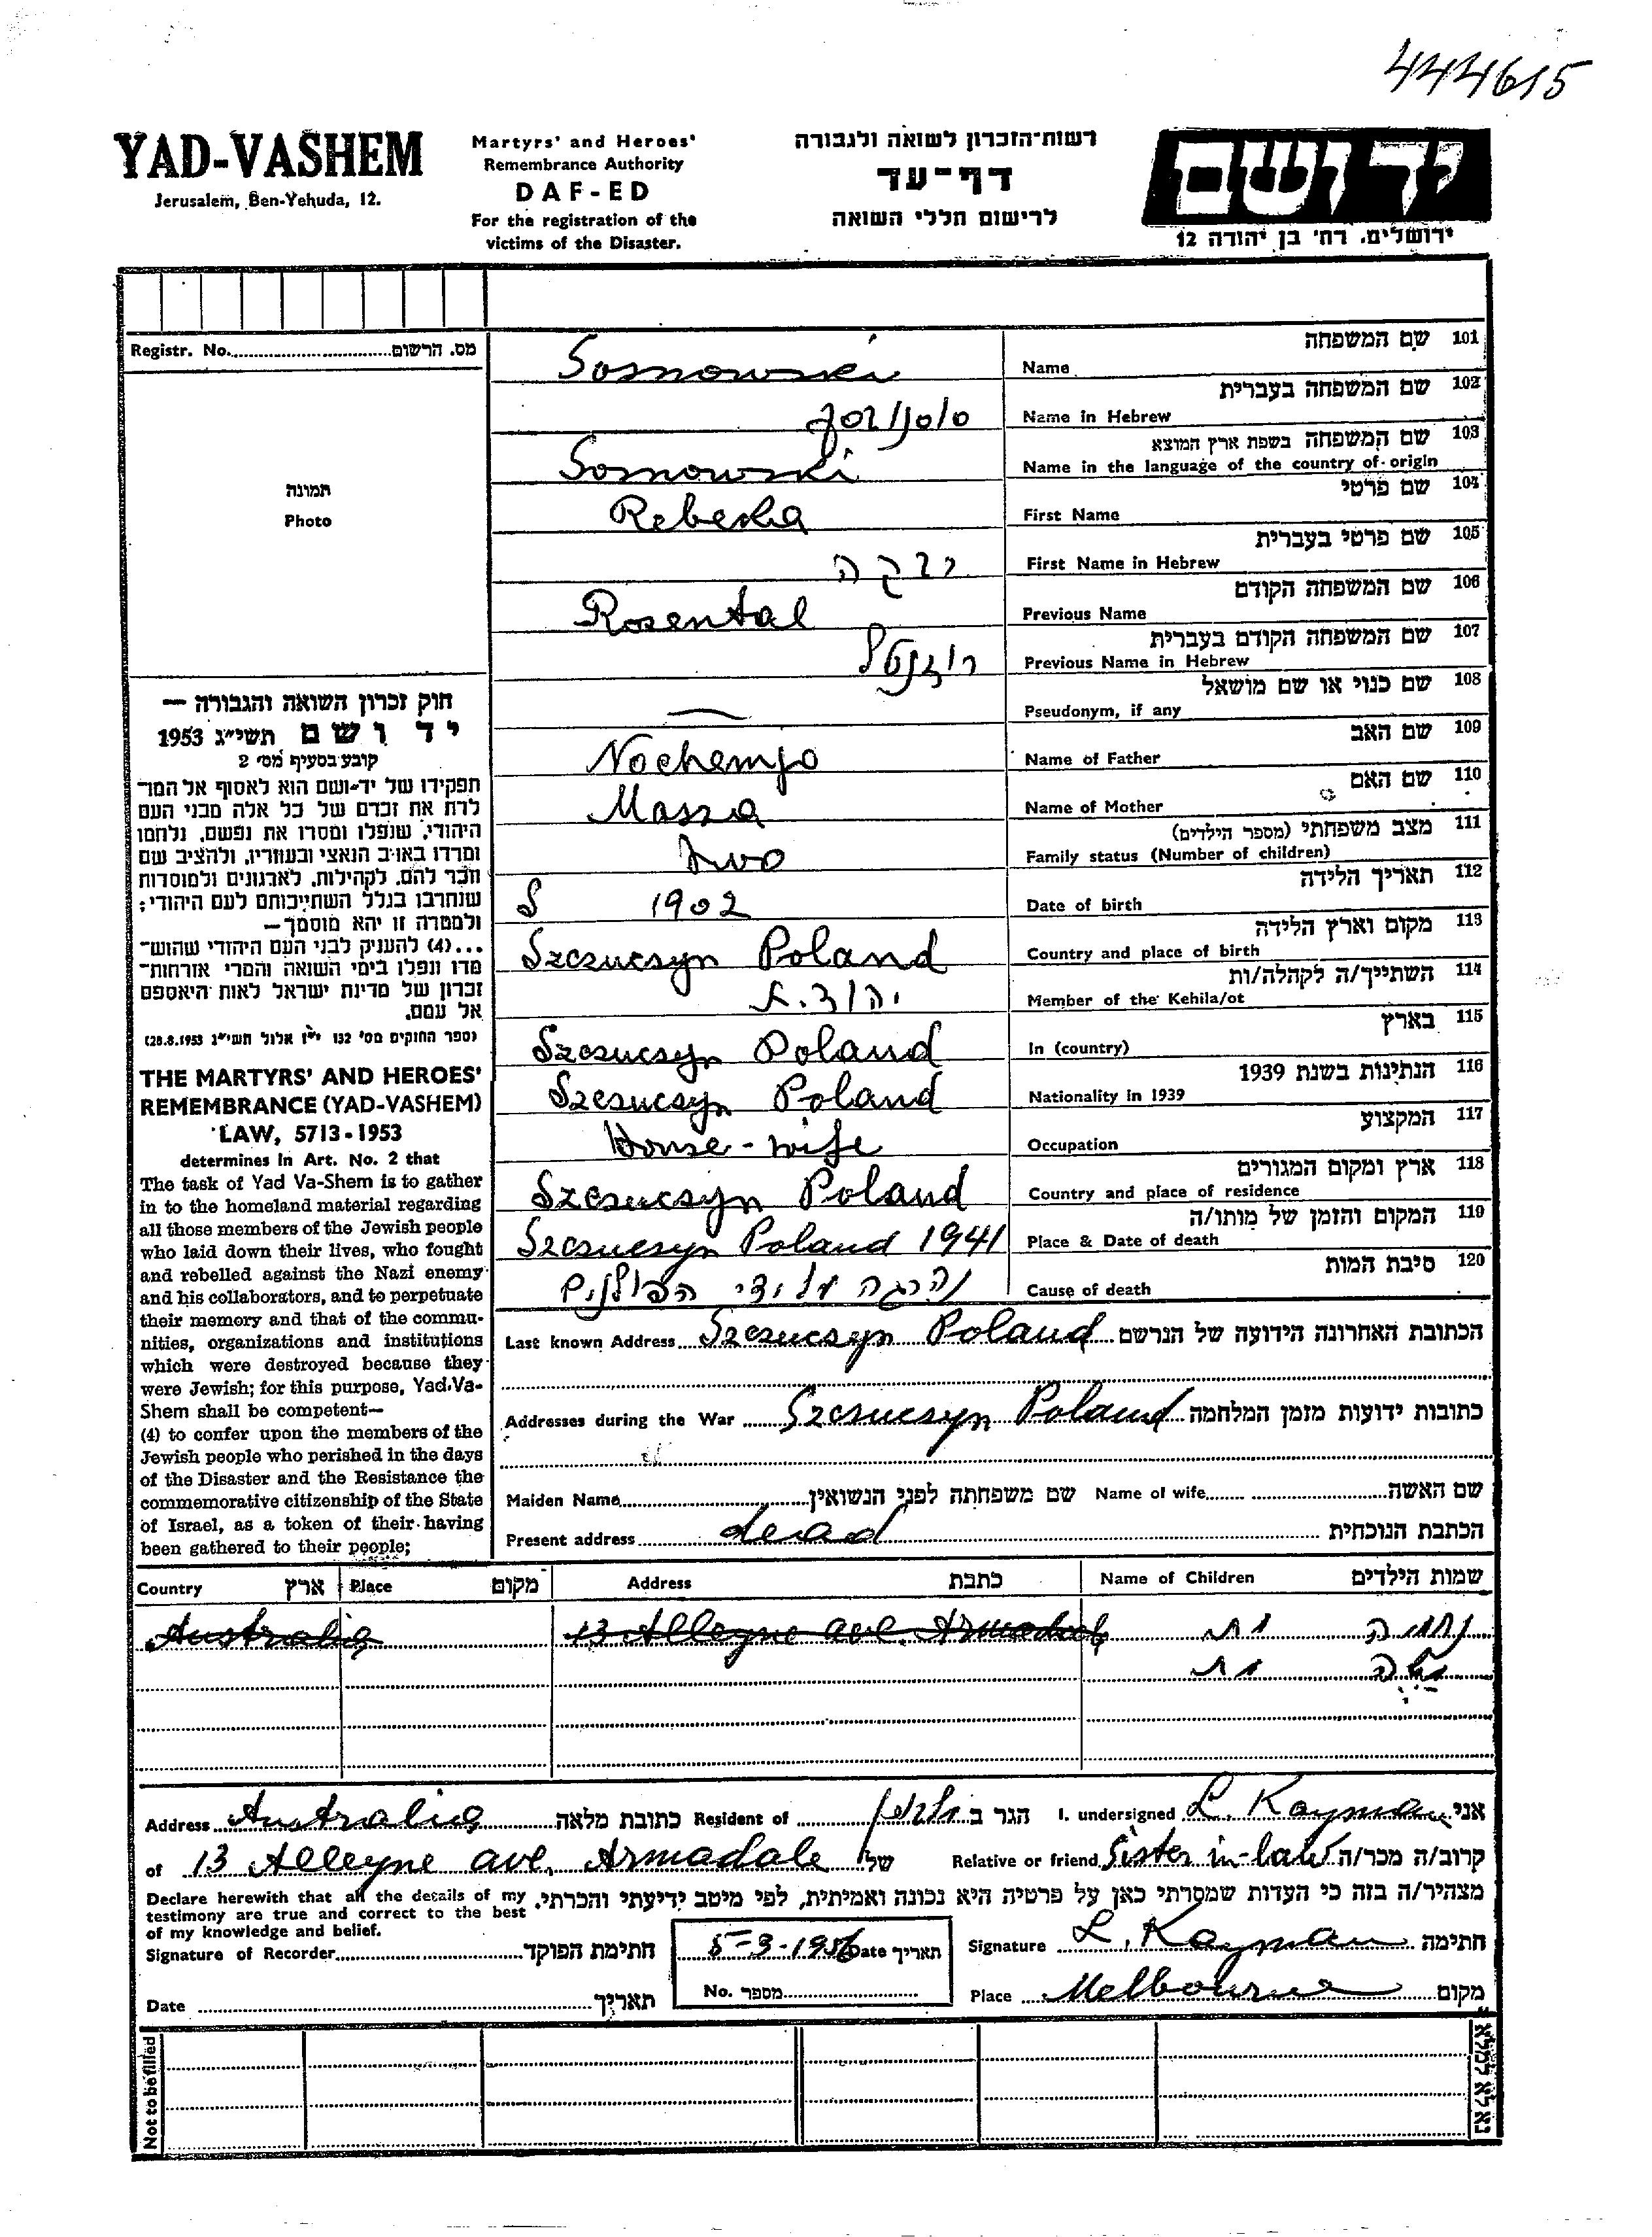 444615
YAD-VASHEM
Jerusalem, Ben-Yehuda, 12.
Martyrs' and Heroes'
Remembrance Authority
DAF-ED
For the registration of the
victims of the Disaster.
רשות-הזכרון לשואה ולגבורה
דף-עד
לרישום חללי השואה
יד ושם
ירושלים. רח' בן יהודה 12
Registr. No. מס. הרשום
תמונה
Photo
Sosnowski Name שם המשפחה 101
סוסנובסקי Name in Hebrew שם המשפחה בעברית 102
Sosnowski Name in the language of the country of origin שם המשפחה בשפת ארץ המוצא 103
Rebecka First Name שם פרטי 104
רבקה First Name in Hebrew שם פרטי בעברית 105
Rosental Previous Name שם המשפחה הקודם 106
רוזנטל Previous Name in Hebrew שם המשפחה הקודם בעברית 107
— Pseudonym, if any שם כנוי או שם מושאל 108
Nochemjo Name of Father שם האב 109
Massa Name of Mother שם האם 110
two Family status (Number of children) מצב משפחתי (מספר הילדים) 111
1902 Date of birth תאריך הלידה 112
Szczucsyn Poland Country and place of birth מקום וארץ הלידה 113
Member of the Kehila/ot השתייך/ה לקהלה/ות 114
Szczucsyn Poland In (country) בארץ 115
Szczucsyn Poland Nationality in 1939 הנתינות בשנת 1939 116
House-wife Occupation המקצוע 117
Szczucsyn Poland Country and place of residence ארץ ומקום המגורים 118
Szczucsyn Poland 1941 Place & Date of death המקום והזמן של מותו/ה 119
נהרגה על ידי הפולנים Cause of death סיבת המות 120
חוק זכרון השואה והגבורה —
יד ושם תשי"ג 1953
קובע בסעיף מס' 2
תפקידו של יד-ושם הוא לאסוף אל המו־
לדת את זכרם של כל אלה מבני העם
היהודי, שנפלו ומסרו את נפשם, נלחמו
ומרדו באויב הנאצי ובעוזריו, ולהציב שם
וזכר להם, לקהילות, לארגונים ולמוסדות
שנחרבו בגלל השתייכותם לעם היהודי;
ולמטרה זו יהא מוסמך—
...(4) להעניק לבני העם היהודי שהוש־
מדו ונפלו בימי השואה והמרי אזרחות־
זכרון של מדינת ישראל לאות היאספם
אל עמם.
(ספר החוקים מס' 132 י"ז אלול תשי"ג 28.8.1953)
THE MARTYRS' AND HEROES'
REMEMBRANCE (YAD-VASHEM)
LAW, 5713-1953
determines in Art. No. 2 that
The task of Yad Va-Shem is to gather
in to the homeland material regarding
all those members of the Jewish people
who laid down their lives, who fought
and rebelled against the Nazi enemy
and his collaborators, and to perpetuate
their memory and that of the commu-
nities, organizations and institutions
which were destroyed because they
were Jewish; for this purpose, Yad.Va-
Shem shall be competent—
(4) to confer upon the members of the
Jewish people who perished in the days
of the Disaster and the Resistance the
commemorative citizenship of the State
of Israel, as a token of their having
been gathered to their people;
Last known Address Szczucsyn Poland הכתובת האחרונה הידועה של הנרשם
Addresses during the War Szczucsyn Poland כתובות ידועות מזמן המלחמה
Maiden Name שם משפחתה לפני הנשואין Name of wife שם האשה
Present address dead הכתבת הנוכחית
Country ארץ Place מקום Address כתבת Name of Children שמות הילדים
Australia 13 Alleyne ave. Armadale בת
בת
Address Australia כתובת מלאה Resident of הגר ב I. undersigned L. Kayman אני
of 13 Alleyne ave, Armadale של Relative or friend Sister in-law קרוב/ה מכר/ה
Declare herewith that all the details of my
testimony are true and correct to the best
of my knowledge and belief.
מצהיר/ה בזה כי העדות שמסרתי כאן על פרטיה היא נכונה ואמיתית, לפי מיטב ידיעתי והכרתי.
Signature of Recorder חתימת הפוקד 5-3-1956 Date תאריך Signature L. Kayman חתימה
Date תאריך No. מספר Place Melbourne מקום
Not to be filled
נא לא למלא